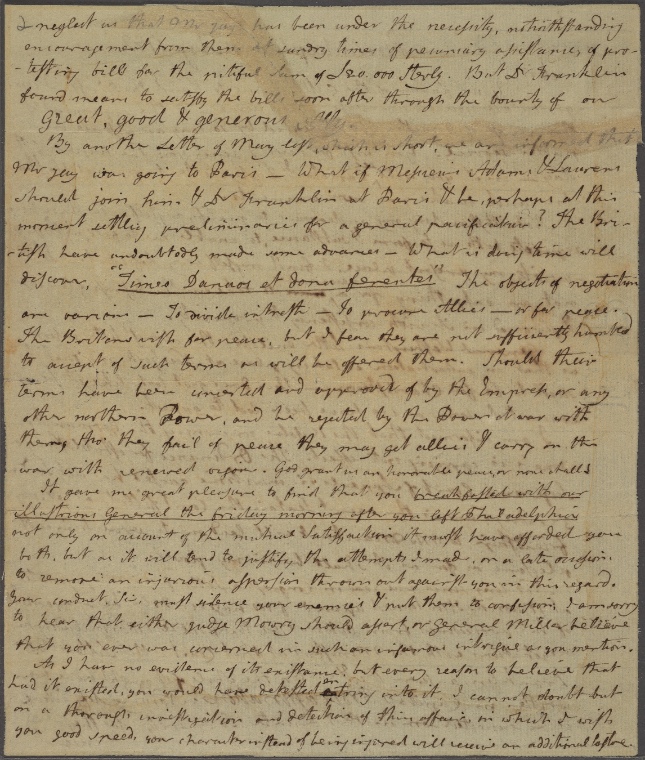 & neglect us that Mr Jay has been under the necessity, notwithstanding
encouragement from them at sundry times of pecuniary assistance, of pro-
-testing bills for the pitiful sum of £20,000 Sterlg. But Dr Franklin
found means to satisfy the bills soon after through the bounty of our
Great, good & generous Ally.
By another Letter of May last, which is short, we are informed that
Mr Jay was going to Paris — What if Messieurs Adams & Laurens
should join him & Dr Franklin at Paris & be, perhaps at this
moment settling preliminaries for a general pacification? The Bri-
-tish have undoubtedly made some advances — What is doing time will
discover, "Timeo Danaos et dona ferentes" The objects of negotiation
are various — To divide intrests — To procure Allies — or for peace.
The Britons wish for peace, but I fear they are not sufficiently humbled
to accept of such terms as will be offered them. Should their
terms have been concerted and approved of by the Empress, or any
other northern Power, and be rejected by the Powers at war with
them, tho' they fail of peace they may get allies & carry on the
war with renewed vigor. God grant us an honorable peace, or new allies
It gave me great pleasure to find that you breakfasted with our
illustrious General the friday morning after you left Philadelphia
not only on account of the mutual Satisfaction it must have afforded you
both, but as it will tend to justify the attempts I made, on a late occasion
to remove an injurious aspersion thrown out against you in this regard.
Your conduct, Sir, must silence your enemies & put them to confusion. I am sorry
to hear that either Judge Mowry should assert, or General Miller believe
that you ever was concerned in such an infamous intrigue as you mention.
As I have no evidence of its existance, but every reason to believe that
had it existed, you would have detested entring into it, I cannot doubt but
on a thorough investigation and detection of this affair, in which I wish
you good speed, your character instead of being injured will receive an additional lustre.